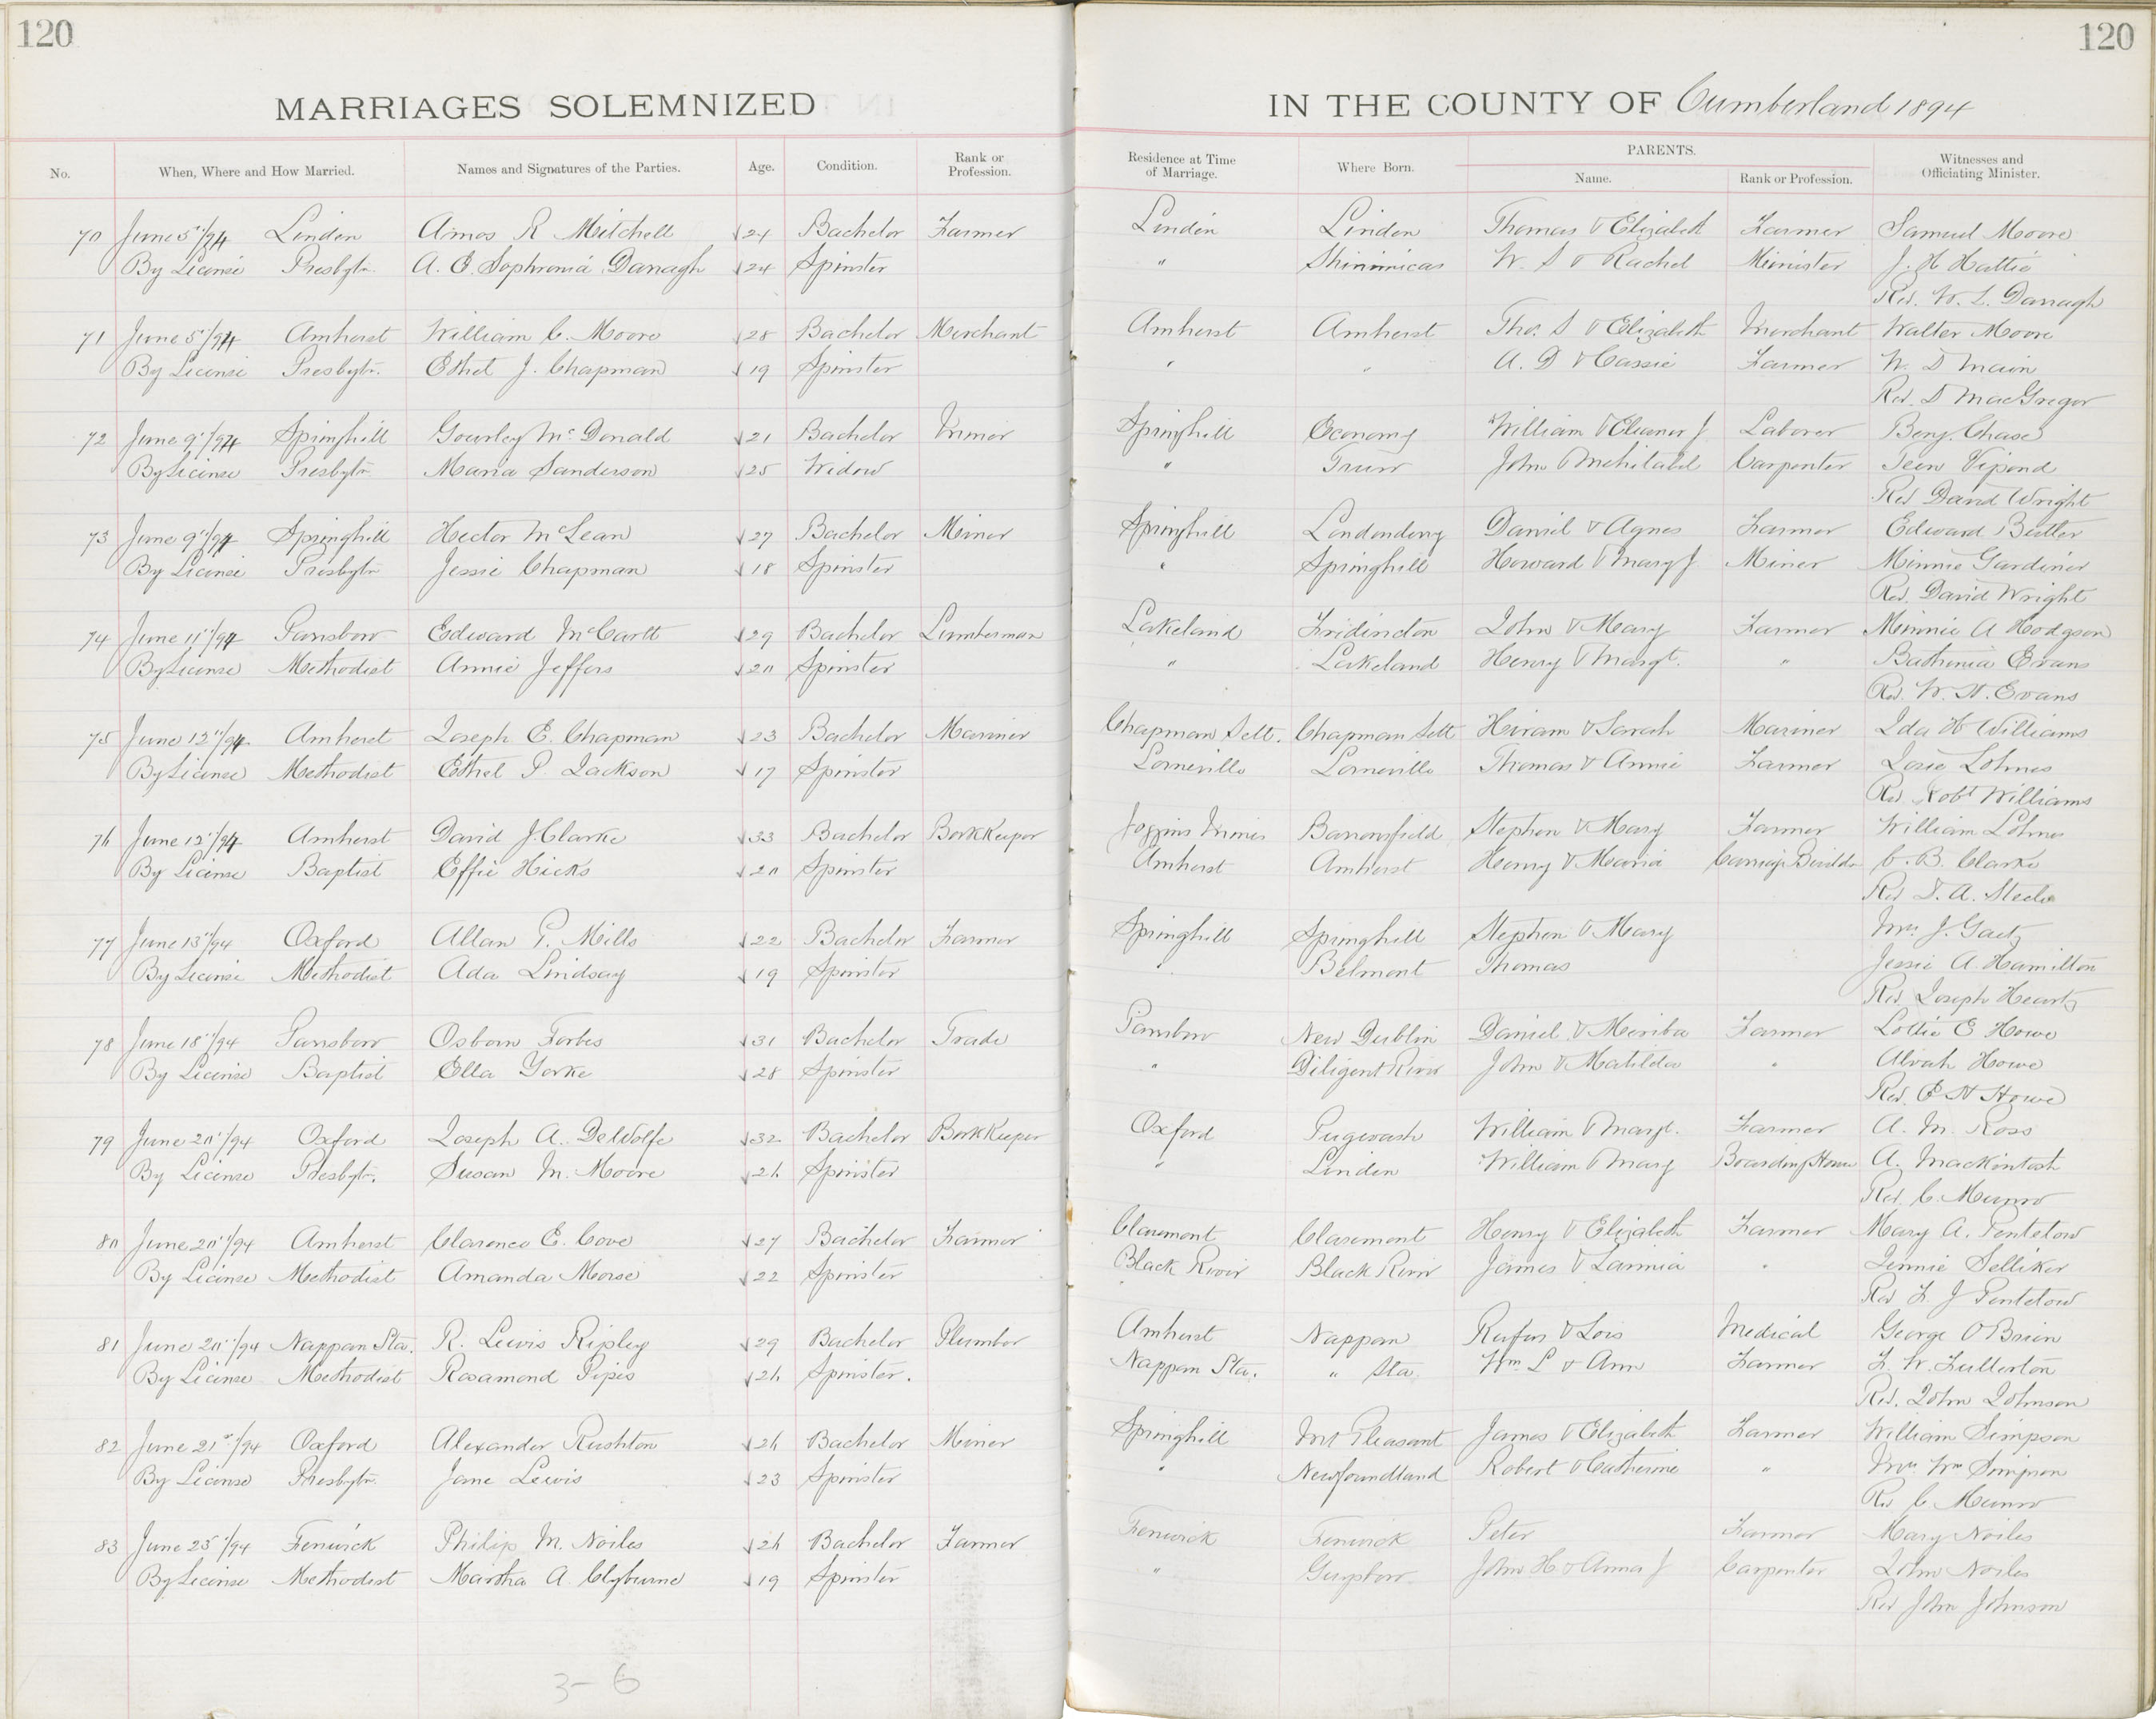 120
120
MARRIAGES SOLEMNIZED
IN THE COUNTY OF Cumberland 1894
No. When, Where and How Married. Names and Signatures of the Parties. Age. Condition. Rank or Profession. Residence at Time of Marriage. Where Born. PARENTS. Name. Rank or Profession. Witnesses and Officiating Minister.
70 June 5"/94 Linden Amos R Mitchell 24 Bachelor Farmer Linden Linden Thomas & Elizabeth Farmer Samuel Moore
By License Presbytn. A. E. Sophronia Darragh 24 Spinster " Shinimicas W. S & Rachel Minister J. H Hattie
Rev. W. S. Darragh
71 June 5"/94 Amherst William C. Moore 28 Bachelor Merchant Amherst Amherst Tho. S & Elizabeth Merchant Walter Moore
By License Presbytn. Ethel J. Chapman 19 Spinster " " A. D & Cassie Farmer W. D Main
Rev. D MacGregor
72 June 9"/94 Springhill Gourley McDonald 21 Bachelor Miner Springhill Economy William & Eleanor J Laborer Benj. Chase
By License Presbytn. Maria Sanderson 25 Widow " Truro John & Mehitabel Carpenter Teen Vipond
Rev David Wright
73 June 9"/94 Springhill Hector McLean 27 Bachelor Miner Springhill Londonderry Daniel & Agnes Farmer Edward Butler
By License Presbytn Jessie Chapman 18 Spinster " Springhill Howard & Mary J. Miner Minnie Gardiner
Rev. David Wright
74 June 11"/94 Parrsboro Edward McCarth 29 Bachelor Lumberman Lakeland Fridericton John & Mary Farmer Minnie A Hodgson
By License Methodist Annie Jeffers 20 Spinster " Lakeland Henry & Margt. " Bathenia Evans
Rev. W. H. Evans
75 June 12"/94 Amherst Joseph E. Chapman 23 Bachelor Mariner Chapman Sett. Chapman Sett Hiram & Sarah Mariner Ida H Williams
By License Methodist Ethel P. Jackson 17 Spinster Lorneville Lorneville Thomas & Annie Farmer Josie Lohnes
Rev Robt Williams
76 June 12"/94 Amherst David J. Clarke 33 Bachelor BookKeeper Joggins Mines Barronsfield Stephen & Mary Farmer William Lohnes
By License Baptist Effie Hicks 20 Spinster Amherst Amherst Henry & Maria Carriage Builder C. B. Clarke
Rev D. A. Steele
77 June 13"/94 Oxford Allan P. Mills 22 Bachelor Farmer Springhill Springhill Stephen & Mary Mrs J. Gaetz
By License Methodist Ada Lindsay 19 Spinster " Belmont Thomas Jessie A. Hamilton
Rev. Joseph Heartz
78 June 18"/94 Parrsboro Osborn Forbes 31 Bachelor Trade Parrsboro New Dublin Daniel & Meriba Farmer Lottie E Howe
By License Baptist Ella Yorke 28 Spinster " Diligent River John & Matilda " Alvah Howe
Rev. E H Howe
79 June 20"/94 Oxford Joseph A. DeWolfe 32 Bachelor BookKeeper Oxford Pugwash William & Margt. Farmer A. M. Ross
By License Presbytn. Susan M. Moore 26 Spinster " Linden William & Mary Boarding House A. Mackintosh
Rev. C. Munro
80 June 20"/94 Amherst Clarence E. Cove 27 Bachelor Farmer Claremont Claremont Henry & Elizabeth Farmer Mary A. Pentelow
By License Methodist Amanda Morse 22 Spinster Black River Black River James & Larinia " Jennie Selliker
Rev F. J Pentelow
81 June 20"/94 Nappan Sta. R. Lewis Ripley 29 Bachelor Plumber Amherst Nappan Rufus & Lois Medical George O'Brien
By License Methodist Rosamond Pipes 26 Spinster. Nappan Sta. " Sta. Wm L & Ann Farmer F. W. Fullerton
Rev. John Johnson
82 June 21st/94 Oxford Alexander Rushton 26 Bachelor Miner Springhill Mt Pleasant James & Elizabeth Farmer William Simpson
By License Presbytn. Jane Lewis 23 Spinster " Newfoundland Robert & Catherine " Mrs Wm Simpson
Rev C. Munro
83 June 25"/94 Fenwick Philip M. Noiles 26 Bachelor Farmer Fenwick Fenwick Peter Farmer Mary Noiles
By License Methodist Martha A Clyburne 19 Spinster " Guysboro John H. & Anna J Carpenter John Noiles
Rev John Johnson
3-6